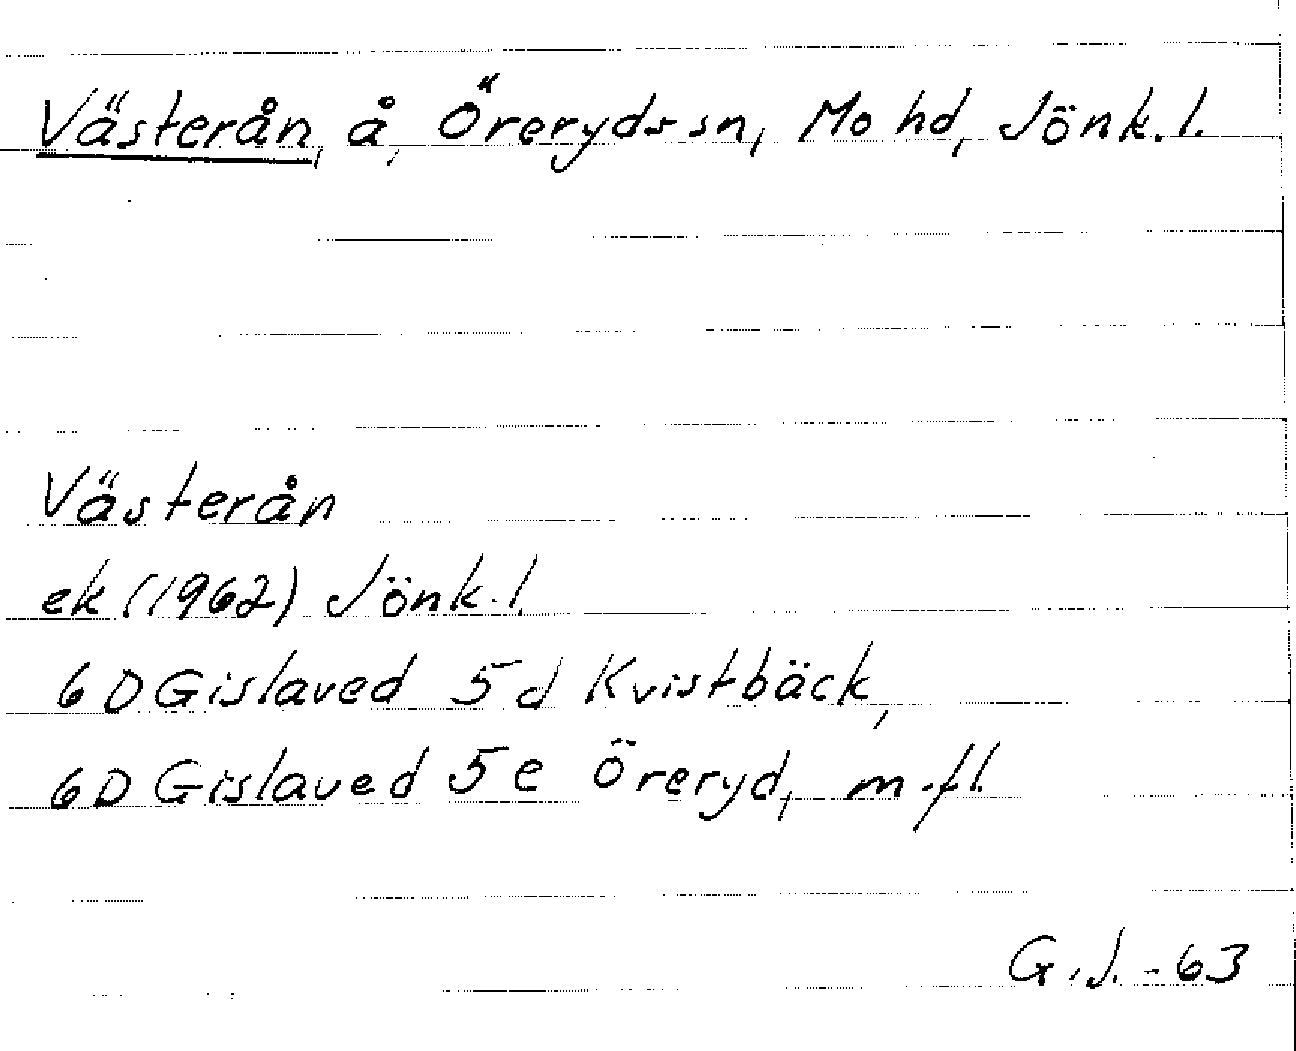 Västerån, å, Öreryds sn, Mo hd, Jönk. l.
Västerån
ek (1962) Jönk. l.
6 D Gislaved 5 d Kvistbäck,
6 D Gislaved 5 e Öreryd, m.fl.
G.J. -63